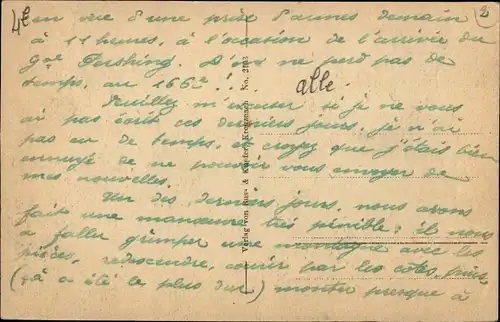 4e
2
en vue d'une prise d'armes demain
à 11 heures, à l'occasion de l'arrivée du
Gal Pershing. On ne perd pas de
temps, au 166e !..
alle.
Veuillez m'excuser si je ne vous
ai pas écrit ces derniers jours, je n'ai
pas eu de temps, et croyez que j'étais bien
ennuyé de ne pouvoir vous envoyer de
mes nouvelles.
Un des derniers jours, nous avons
fait une manœuvre très pénible : il nous
a fallu grimper une montagne avec les
pièces, redescendre, courir par les côtes, puis
(çà a été le plus dur) monter presque à
Verlag vom Russ & Kuepfer, Kreuznach No. 2103